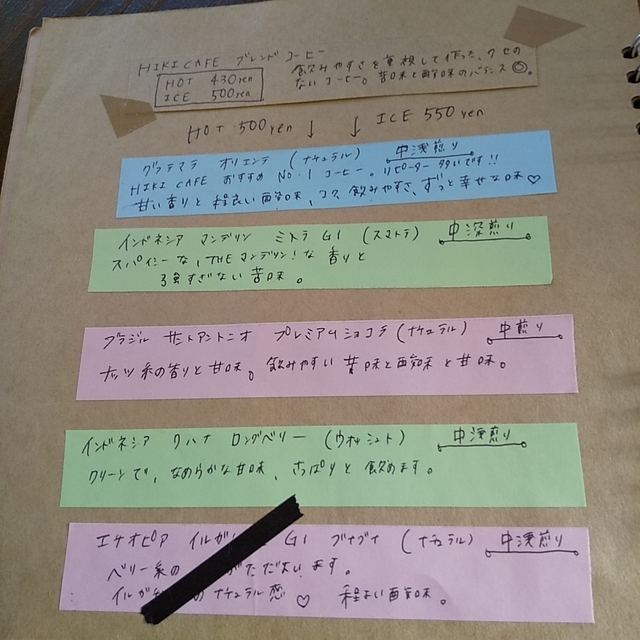 HIKI CAFE ブレンドコーヒー
HOT 430yen
ICE 500yen
飲みやすさを重視して作った、クセの
ないコーヒー。苦味と酸味のバランス◎。
HOT 500yen ↓ ↓ ICE 550yen
グァテマラ オリエンテ (ナチュラル) 中浅煎り
HIKI CAFE おすすめ No.1 コーヒー。リピーター 多いです!!
甘い香りと程良い酸味、コク、飲みやすさ、ずっと幸せな味♡
インドネシア マンデリン ミトラ G1 (スマトラ) 中深煎り
スパイシーな、THEマンデリン!な香りと
強すぎない苦味。
ブラジル サントアントニオ プレミアムショコラ (ナチュラル) 中煎り
ナッツ系の香りと甘味。飲みやすい苦味と酸味と甘味。
インドネシア ワハナ ロングベリー (ウォッシュト) 中深煎り
クリーンで、なめらかな甘味、さっぱりと飲めます。
エチオピア イルガ G1 (ナチュラル) 中浅煎り
ベリー系の がただよいます。
イルガ のナチュラル恋♡ 程よい酸味。